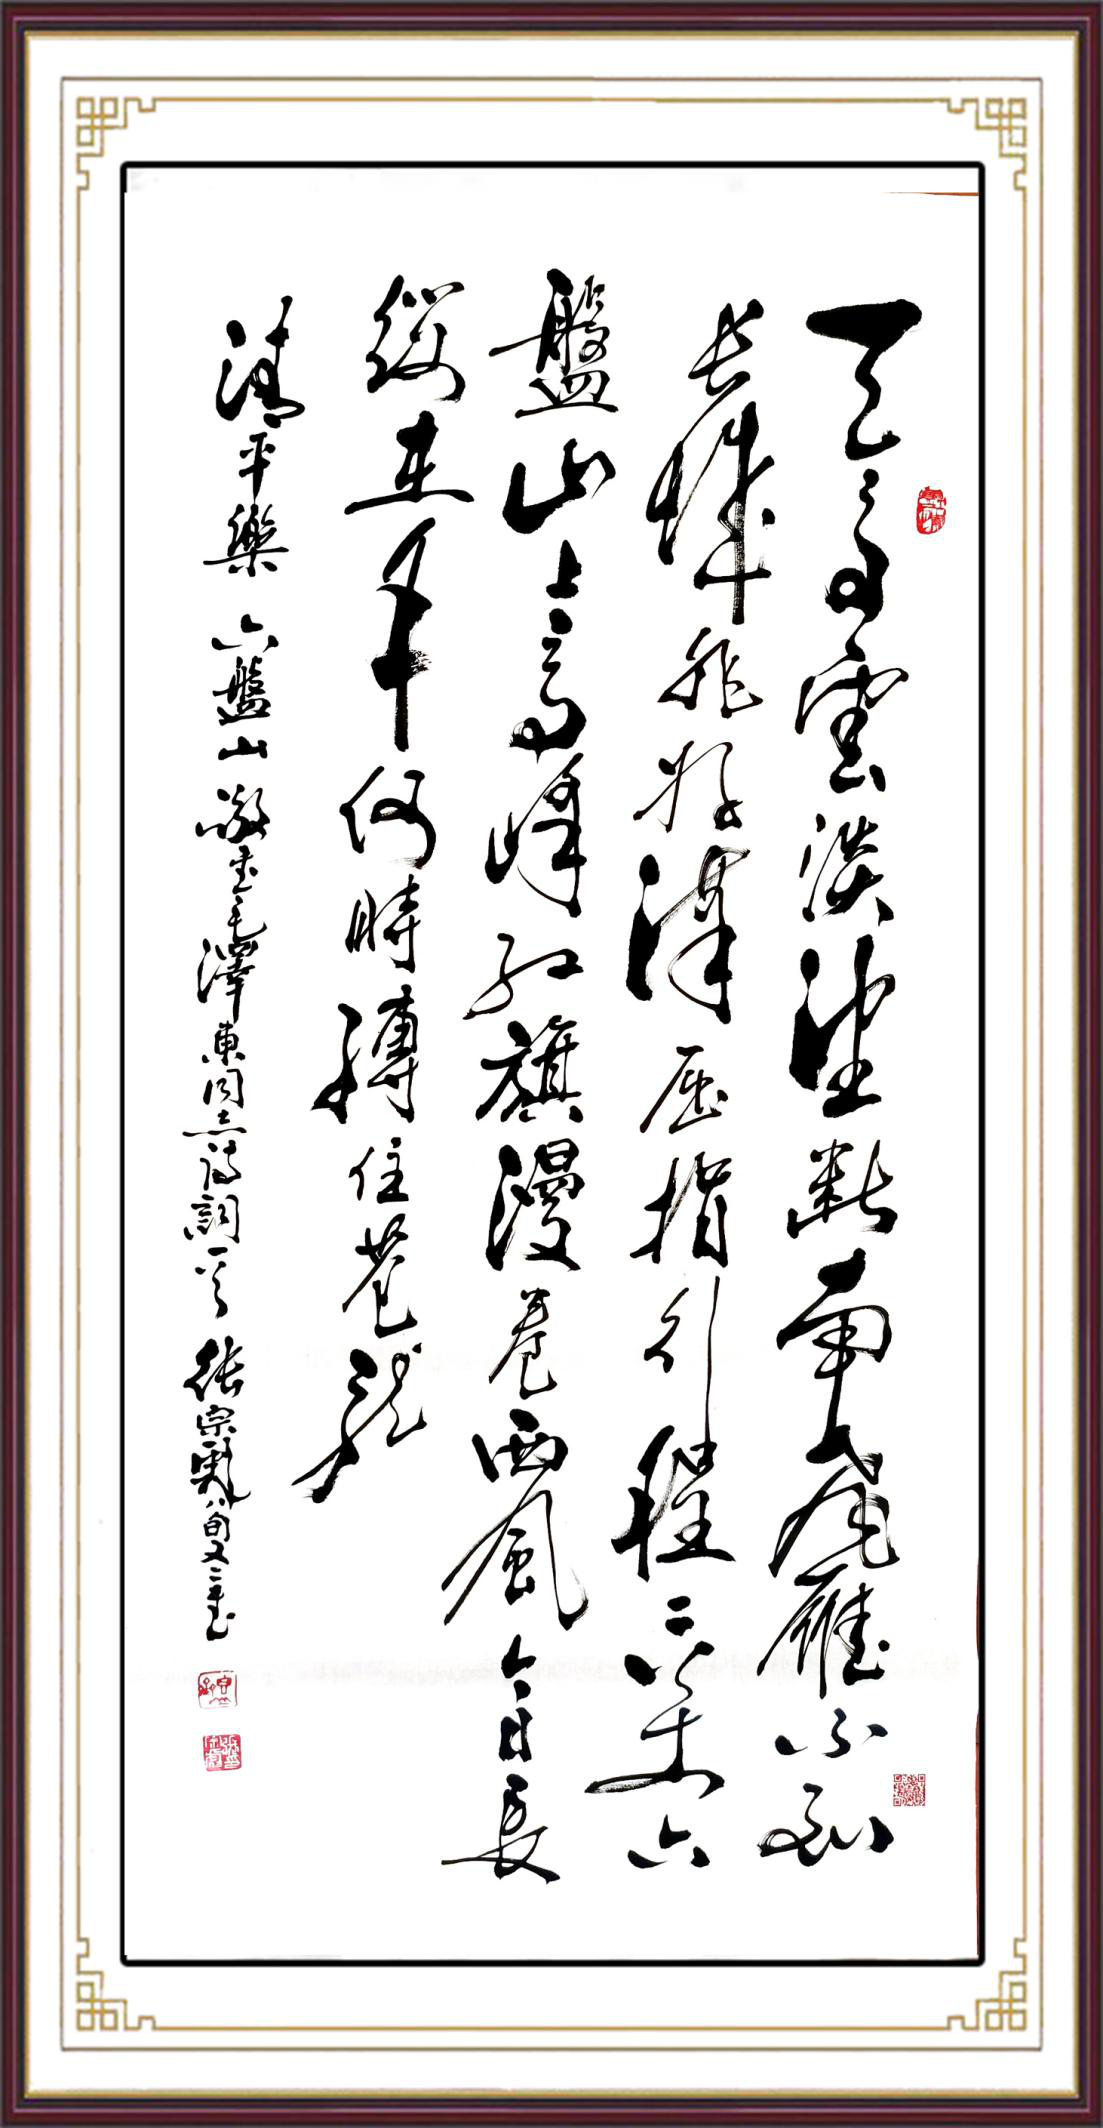 天高雲淡望斷南飛雁不到
長城非好漢屈指行程二萬六
盤山上高峰紅旗漫卷西風今日長
纓在手何時縛住蒼龍
清平樂 六盤山 敬書毛澤東同志詩詞一首 張宗 八旬又二書